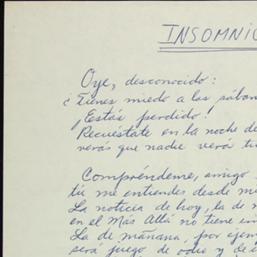 INSOMNIO
Oye, desconocido:
¿Tienes miedo a las sában
¡Estás perdido!
Recuéstate en la noche de
verás que nadie verá tu
Compréndeme, amigo
tú me entiendes desde m
La noticia de hoy, la de
en el Más Allá no tiene
La de mañana, por ejem
será juego de odio y de